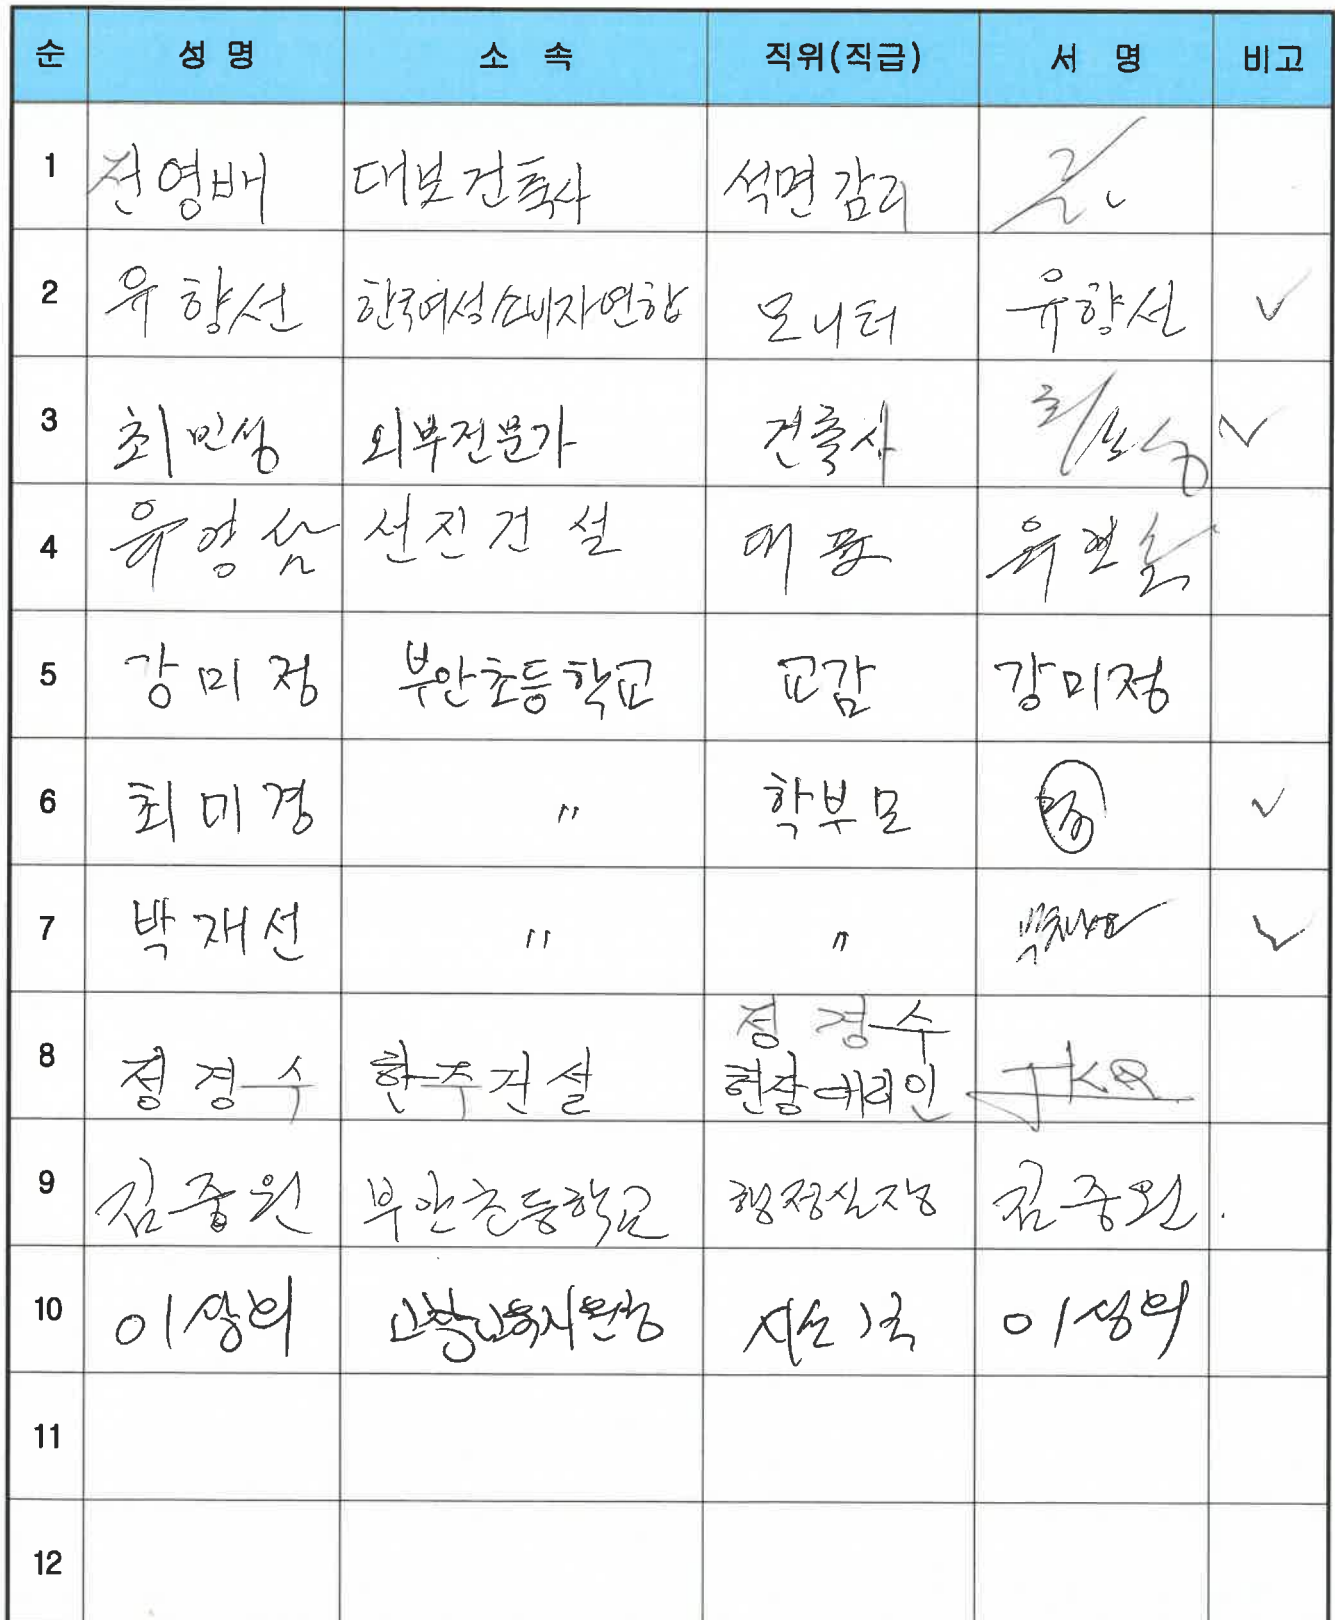 순 성 명 소 속 직위(직급) 서 명 비고
1 전영배 대보건축사 석면감리
2 유향선 한국여성소비자연합 모니터 유향선 ✓
3 최민성 외부전문가 건축사 ✓
4 유영삼 선진건설 대표
5 강미정 부안초등학교 교감 강미정
6 최미경 〃 학부모 ✓
7 박재선 〃 〃 ✓
정경수
8 정경수 한주건설 현장대리인
9 김중원 부안초등학교 행정실장 김중원
10 이상의 이상의
11
12